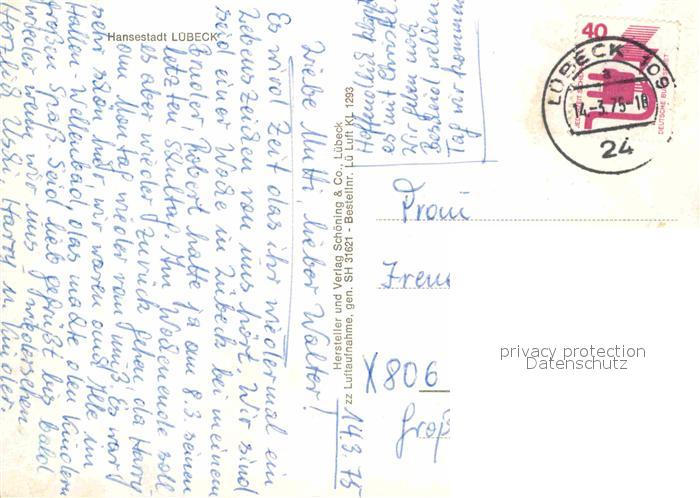 Hansestadt LÜBECK
14.3.75
Liebe Mutti, lieber Walter!
Es wird Zeit das ihr wiedermal ein
Lebenszeichen von uns hört. Wir sind
seid einer Woche in Lübeck bei meinem
Bruder. Robert hatte ja am 8.3. seinen
letzten Schultag. Am Wochenende soll
es aber wieder zurück gehen, da Harry
am Montag wieder ran muß. Es war
sehr schön hier wir waren auch alle im
Hallen-Wellenbad, das machte den Kindern
großen Spaß. Seid lieb gegrüßt bis bald
wieder wenn wir uns wiedersehen
Herzlich Harry u. Kinder.
Wir haben noch
Tag wir kommen
Hersteller und Verlag Schöning & Co., Lübeck
zz Luftaufnahme, gen. SH 31621 - Bestellnr. Lü Luft KL 1293
40
DEUTSCHE BU
LÜBECK 109
a
14.-3.75-18
24
X806
Groß
privacy protection
Datenschutz